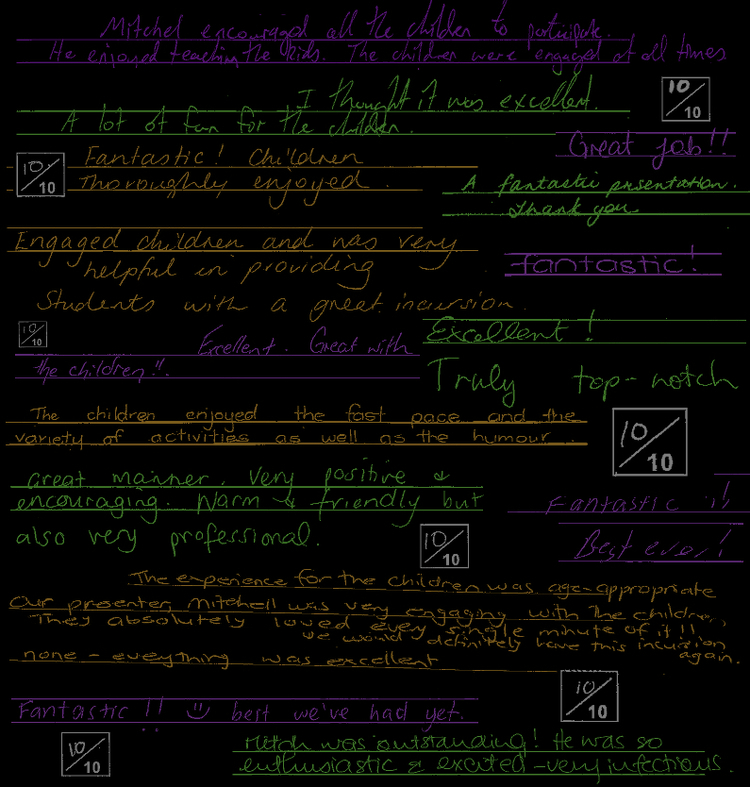 Mitchel encouraged all the children to participate.
He enjoyed teaching the kids. The children were engaged at all times
I thought it was excellent.
A lot of fun for the children.
10/10
Great job!!
10/10
Fantastic! Children
Thoroughly enjoyed.
A fantastic presentation.
Thank you
Engaged children and was very
helpful in providing
Students with a great incursion.
fantastic!
10/10
Excellent. Great with
the children!!.
Excellent!
Truly top-notch
The children enjoyed the fast pace and the
variety of activities as well as the humour.
10/10
Great manner. Very positive &
encouraging. Warm & friendly but
also very professional.
10/10
Fantastic !!
Best ever!
The experience for the children was age-appropriate
Our presenter, Mitchell was very engaging with the children,
They absolutely loved every single minute of it!!
We would definitely have this incursion
again.
none - eveything was excellent
10/10
Fantastic!! ☺ best we've had yet.
10/10
Mitch was outstanding! He was so
enthusiastic & excited - very infectious.